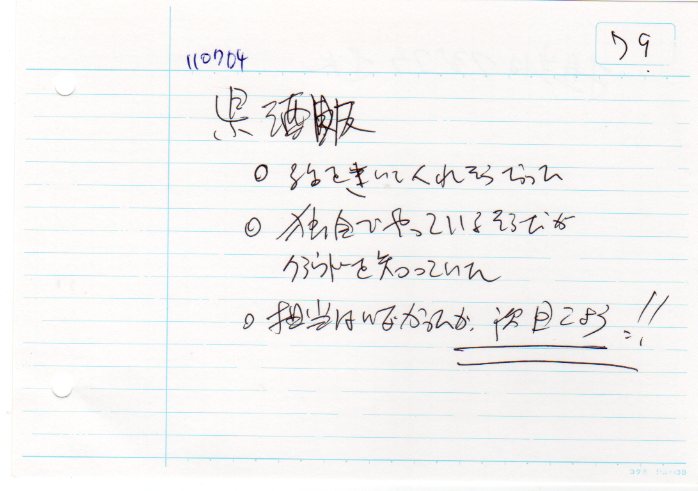 79
110704
県酒販
○ 話を聞いてくれそうだった
◎ 独自でやっているそうだが
を知っていた
○ 担当はいなかったが、次回こよう!!